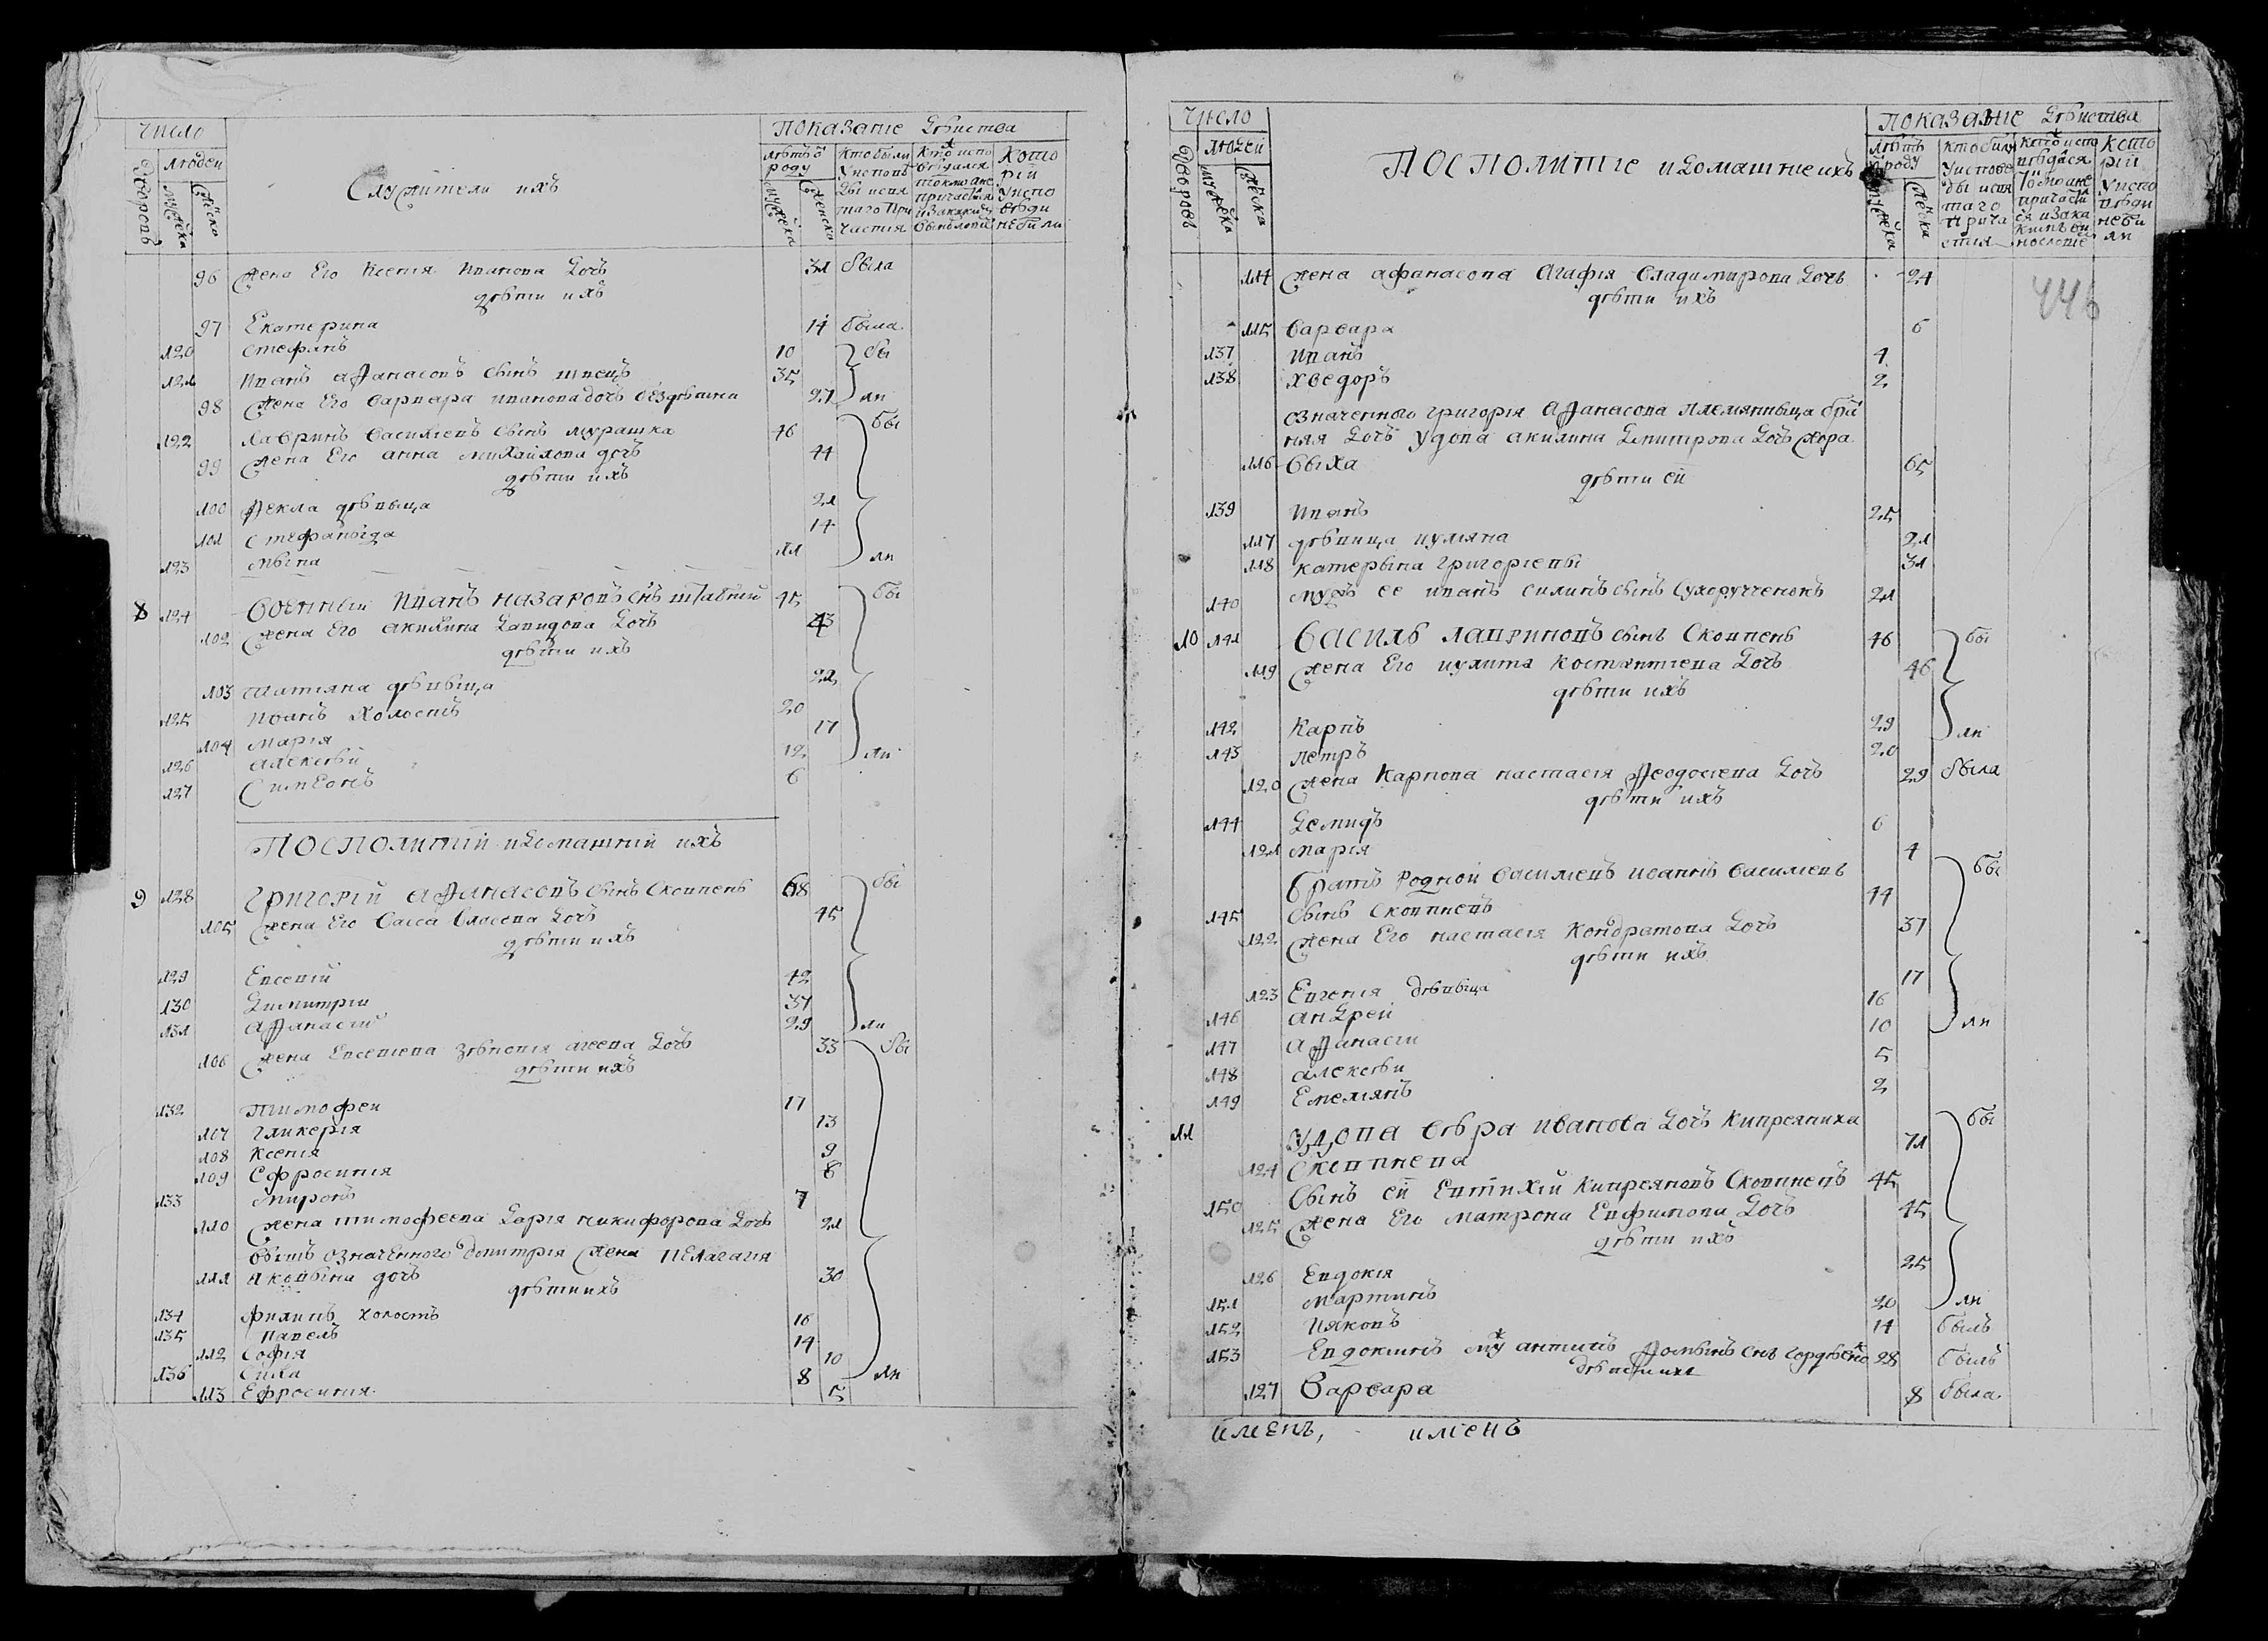 Число
Дворовъ
людеи
мужеска
женска
Служители ихъ
Показание Действа
летъ от роду
мужеска
женска
Кто были у исповеди и святаго причастия
Кто исповедался токмо а не причастился и за какимъ виномъ
Которiи у исповеди не были
96 жена Его Ксения Иванова Дочь 31 была
дети ихъ
97 Екатерина 14 была
120 Стефанъ 10 бы
121 Иванъ Афанасовъ сынъ швецъ 35
98 жена Его Варвара Иванова дочь бездетни 27 ли
122 Лавринъ Василiевъ сынъ Мурашка 46 бы
99 жена Его Анна Михайлова дочь 44
дети ихъ
100 Фекла девьица 21
101 Стефаныда 14
123 Мына 11 ли
8 124 Военный Иванъ Назаровъ снъ 45 бы
102 жена Его Акилина Давидова Дочъ 43
дети ихъ
103 Татiяна девьица 22
125 Иванъ холостъ 20
104 Марiя 17
126 Алексеи 12 ли
127 Симеонъ 6
Посполитiй и Домашнiй ихъ
9 128 Григорiй Афанасовъ сынъ Сковпень 68 бы
105 жена Его Васса Власова Дочъ 45
дети ихъ
129 Евсевiй 42
130 Димитрiи 37
131 Афанасiй 29 ли
106 жена Евсевiева Зеновiя Дочъ 33 бы
дети ихъ
132 Тимофеи 17
107 Гликерiя 13
108 Ксенiя 9
109 Ефросинiя 8
133 Миронъ 7
110 жена Тимофеева Дарiя Никифорова Дочъ 21
означенного Дмитрiя жена Пелагагiя
111 Яковына дочъ 30
дети ихъ
134 Филипъ холостъ 16
135 Павелъ 14
112 Софiя 10
136 Сила 8 ли
113 Ефросинiя 5
Число
Дворовъ
людеи
мужеска
женска
Посполитiе и Домашнiе ихъ
Показание Действа
летъ от роду
мужеска
женска
Кто были у исповеди и святаго причастия
Кто исповедася токмо а не причастися и за какимъ виннословiемъ
Которiи у исповеди не били
446
114 жена Афанасова Агафiя Владимирова Дочъ 24
дети ихъ
115 Варвара 6
137 Иванъ 4
138 Хведоръ 2
означенного Григорiя Афанасова племянныца
Дочъ удова Акилина Дмитрова Дочъ Жора
116 выха 65
дети ей
139 Иванъ 25
117 девица Иулiяна 21
118 Катерына Григорiевы 31
140 мужъ ее Иванъ Силинъ сынъ Сухорученокъ 21
10 141 Василь Лавриновъ сынъ Сковпень 46 бы
119 жена Его Иулита Костянтiева Дочъ 46
дети ихъ
142 Карпъ 29 ли
143 Петръ 20
120 жена Карпова Настасiя Феодосiева Дочъ 29 была
дети ихъ
144 Демидъ 6
121 Марiя 4
Братъ Родной Василiевъ Иоаннъ Василiевъ бы
145 сынъ Сковпнень 44
122 жена Его Настасiя Кондратова Дочъ 37
дети ихъ
123 Евгенiя девьица 17
146 Андреи 16
147 Афанасiи 10 ли
148 Алексеи 5
149 Емелiянъ 2
11 удова Вера Иванова Дочъ Кипрeяниха бы
124 Сковпнева 71
150 Сынъ ей Евтихiй Кипреяновъ Сковпнень 45
125 жена Его Матрона Евфимова Дочъ 45
дети ихъ
126 Евдокiя 25
151 Мартинъ 20 ли
152 Иаковъ 14 былъ
153 Евдокiинъ муж Антипъ Фоминъ снъ 28 былъ
дети ихъ
127 Варвара 8 была
именъ, именъ